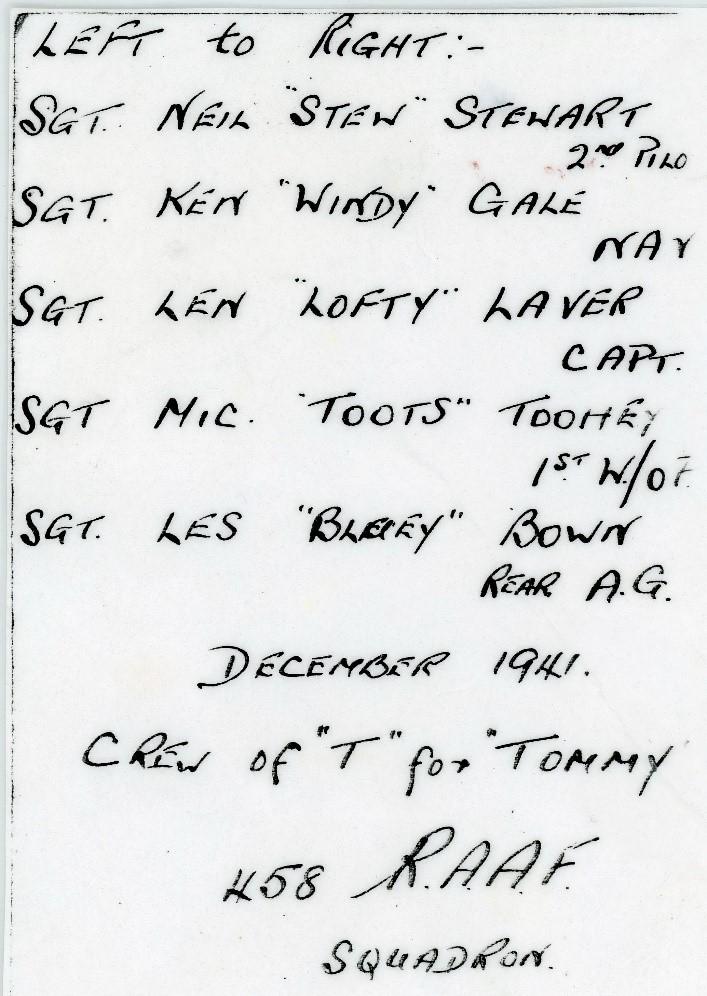 LEFT to RIGHT:-
SGT. NEIL "STEW" STEWART
2ND PILO
SGT. KEN "WINDY" GALE
NAV
SGT. LEN "LOFTY" LAVER
CAPT.
SGT MIC. "TOOTS" TOOHEY
1ST W/OP
SGT. LES "BLUEY" BOWN
REAR A.G.
DECEMBER 1941.
CREW of "T" for "TOMMY
458 R.A.A.F.
SQUADRON.